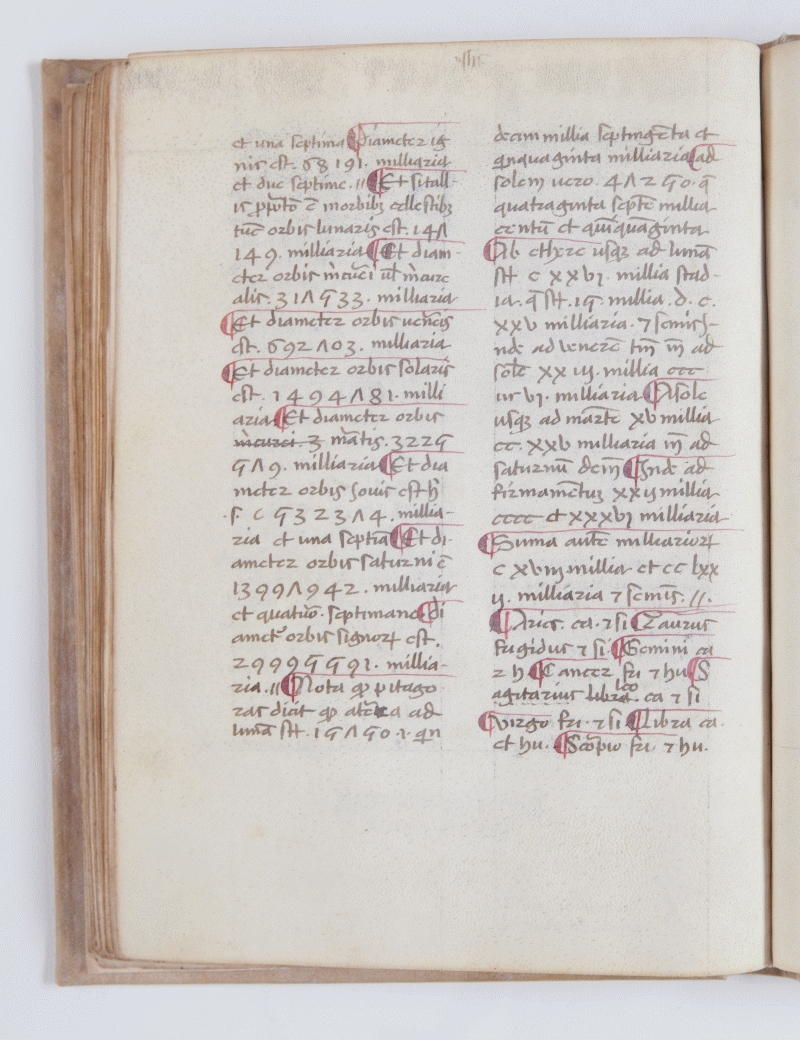 et una septima ¶ Diameter ig
nis est. 68191. milliaria
et due septime. // ¶ Et sital-
is ꝓpoꝛto ē morbibꝫ cellestibꝫ
tūc orbis lunaris est. 14Λ
149. milliaria ¶ Et diam-
eter orbis m̄curi ul̄ m̄cure
alis. 31Λ533. milliaria
¶ Et diameter orbis ueneis
est. 692Λ03. milliaria
¶ Et diameter orbis solaris
est. 1494Λ81. milli
aria ¶ Et diameter orbis
m̄tis. 3225
5Λ9. milliaria ¶ Et dia
meter orbis Iouis est
5323Λ4. millia-
ria et una septīa ¶ Et di-
ameter orbis saturni ē
1399Λ942. milliaria
et quatuo. septimane ¶ di
amet orbis signoꝝ est.
29995591. millia-
ria. // ¶ Nota ꝙ pitago
ras dicit ꝙ a ad
lunā st. 15Λ50. qn
decim millia septingēta et
qnquaginta milliaria ¶ ad
solem uero. 4Λ250. q̄
quatraginta septē millia
centū et quīquāginta
¶ Ab ethere usqꝫ ad lunā
st c xxvi. millia stad-
ia. q̄ st. 15. millia. d. c.
xxv milliaria. ⁊ semis
nde ad venerē tm̄ īn ad
solē xx iij. millia ccc
milliaria ¶ Asole
usqꝫ ad martē xv millia
cc. xxv milliaria īn ad
saturnū dem̄ ¶ Inde ad
firmamētuꝫ xxij millia
cccc et xxxvi milliaria
¶ Suma autē milliarioꝝ
c xviij millia et cc lxx
ij. milliaria ⁊ semis. //.
¶ Aries. ca. ⁊ si ¶ Taurus
frigidus ⁊ si. ¶ Gemini ca
⁊ h ¶ Cancer fri ⁊ hu ¶ S
agitarius libra leo ca ⁊ si
¶ Virgo fri. ⁊ si ¶ Libra ca.
et hu. ¶ Scōpio fri. ⁊ hu.